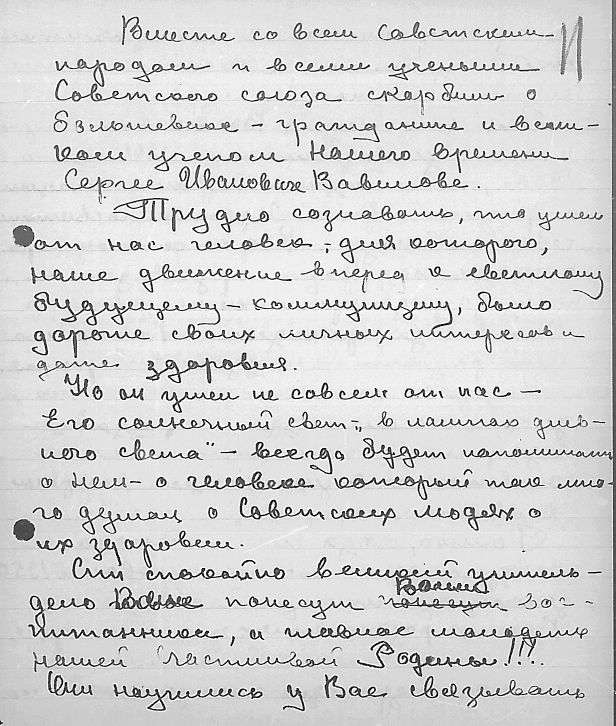 Вместе со всем Советским
народом и всеми учеными
Советского союза скорбим о
большевике - гражданине и вели-
ком ученом нашего времени
Сергее Ивановиче Вавилове.
Трудно сознавать, что ушел
от нас человек, для которого,
наше движение вперед к светлому
будущему - коммунизму, было
дороже своих личных интересов и
даже здоровия.
Но он ушел не совсем от нас -
Его солнечный свет - "в лампах днев-
ного света" - всегда будет напоминать
о нем - о человеке который так мно-
го думал о Советских людях о
их здоровии.
Спи спокойно великий учитель -
дело Ваше понесут Ваши вос-
питанники, а главное молодежь
нашей счастливой Родины!!!
Они научились у Вас связывать